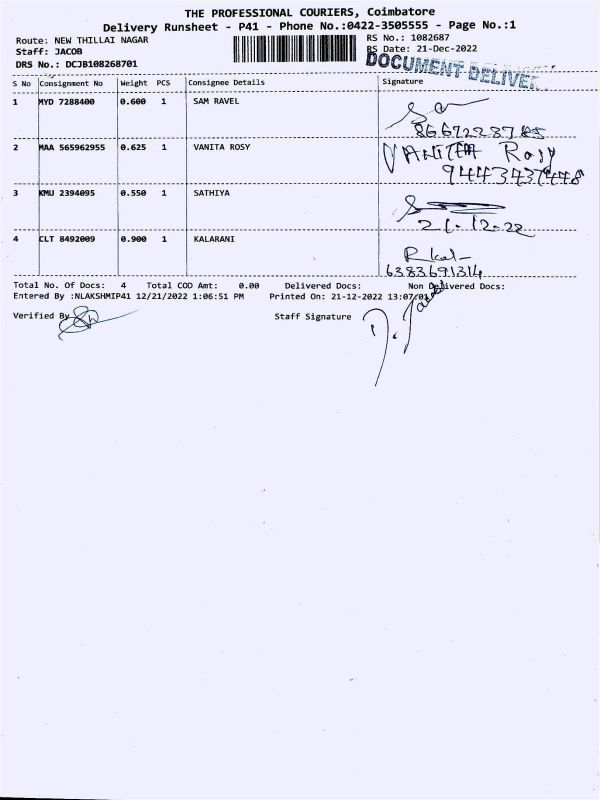 THE PROFESSIONAL COURIERS, Coimbatore
Delivery Runsheet - P41 - Phone No.:0422-3505555 - Page No.:1
Route: NEW THILLAI NAGAR
Staff: JACOB
DRS No.: DCJB108268701
RS No.: 1082687
RS Date: 21-Dec-2022
DOCUMENT DELIVE
S No Consignment No Weight PCS Consignee Details Signature
1 MYD 7288400 0.600 1 SAM RAVEL
2 MAA 565962955 0.625 1 VANITA ROSY VANITHA Rosy
3 KMU 2394095 0.550 1 SATHIYA
21.12.22
4 CLT 8492009 0.900 1 KALARANI
6383691314
Total No. Of Docs: 4 Total COD Amt: 0.00 Delivered Docs: Non Delivered Docs:
Entered By :NLAKSHMIP41 12/21/2022 1:06:51 PM Printed On: 21-12-2022 13:07:01
Verified By Staff Signature